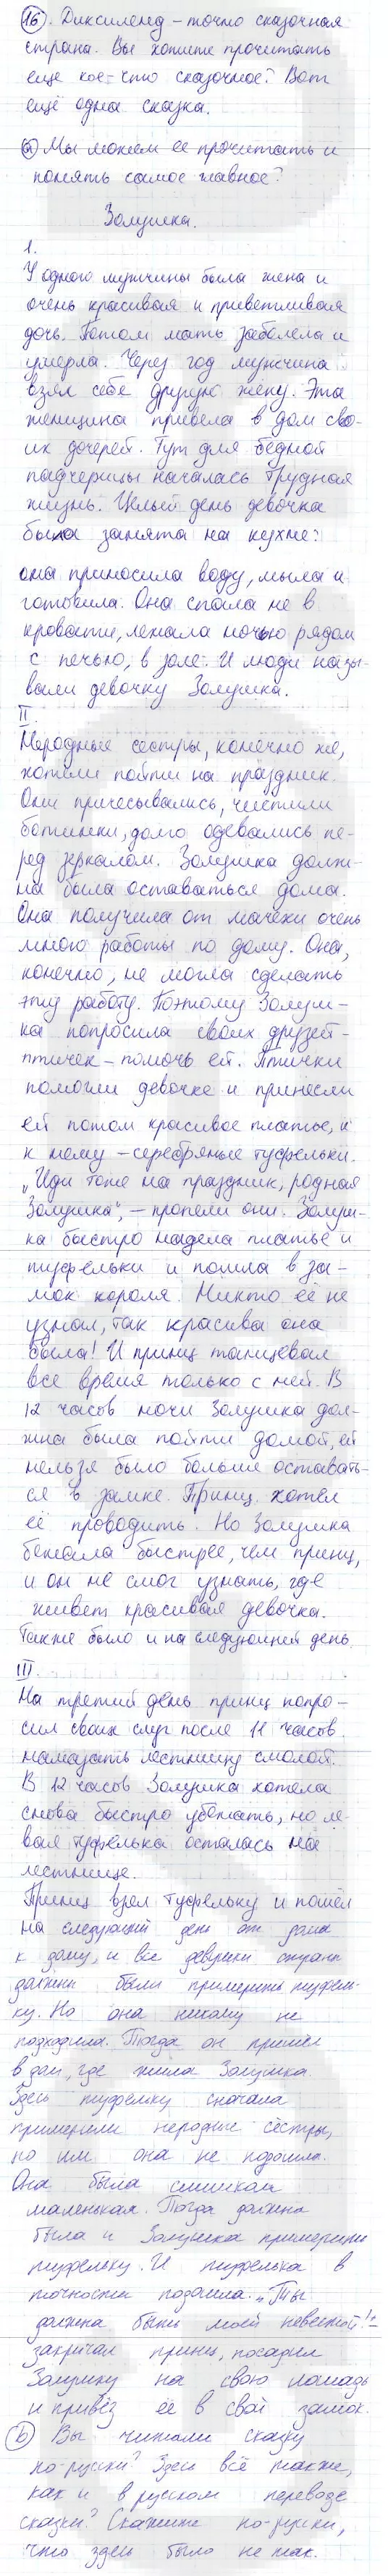 16. Диксиленд - точно сказочная
страна. Вы хотите прочитать
еще кое-что сказочное? Вот
ещё одна сказка.
а) Мы можем ее прочитать и
понять самое главное?
Золушка.
1.
У одного мужчины была жена и
очень красивая и приветливая
дочь. Потом мать заболела и
умерла. Через год мужчина
взял себе другую жену. Эта
женщина привела в дом сво-
их дочерей. Тут для бедной
падчерицы началась трудная
жизнь. Целый день девочка
была занята на кухне:
она приносила воду, мыла и
готовила. Она спала не в
кровати, лежала ночью рядом
с печью, в золе. И люди назы-
вали девочку Золушка.
II.
Неродные сестры, конечно же,
хотели пойти на праздник.
Они причесывались, чистили
ботинки, долго одевались пе-
ред зеркалом. Золушка долж-
на была оставаться дома.
Она получила от мачехи очень
много работы по дому. Она,
конечно, не могла сделать
эту работу. Поэтому Золуш-
ка попросила своих друзей -
птичек - помочь ей. Птички
помогли девочке и принесли
ей потом красивое платье, и
к нему - серебряные туфельки.
„Иди тоже на праздник, родная
Золушка", - пропели они. Золуш-
ка быстро надела платье и
туфельки и пошла в за-
мок короля. Никто её не
узнал, так красива она
была! И принц танцевал
все время только с ней. В
12 часов ночи Золушка дол-
жна была пойти домой, ей
нельзя было больше оставать-
ся в замке. Принц хотел
её проводить. Но Золушка
бежала быстрее, чем принц,
и он не смог узнать, где
живет красивая девочка.
Также было и на следующий день.
III.
На третий день принц попро-
сил своих слуг после 11 часов
намазать лестницу смолой.
В 12 часов Золушка хотела
снова быстро убежать, но ле-
вая туфелька осталась на
лестнице.
Принц взял туфельку и пошёл
на следующий день от дома
к дому, и все девушки страны
должны были примерить туфель-
ку. Но она никому не
подходила. Тогда он пришёл
в дом, где жила Золушка.
Здесь туфельку сначала
примерили неродные сёстры,
но им она не подошла.
Она была слишком
маленькая. Тогда должна
была и Золушка примерить
туфельку. И туфелька в
точности подошла. „Ты
должна быть моей невестой!" -
закричал принц, посадил
Золушку на свою лошадь
и привёз её в свой замок.
b) Вы читали сказку
по-русски? Здесь всё также,
как и в русском переводе
сказки? Скажите по-русски,
что здесь было не так.